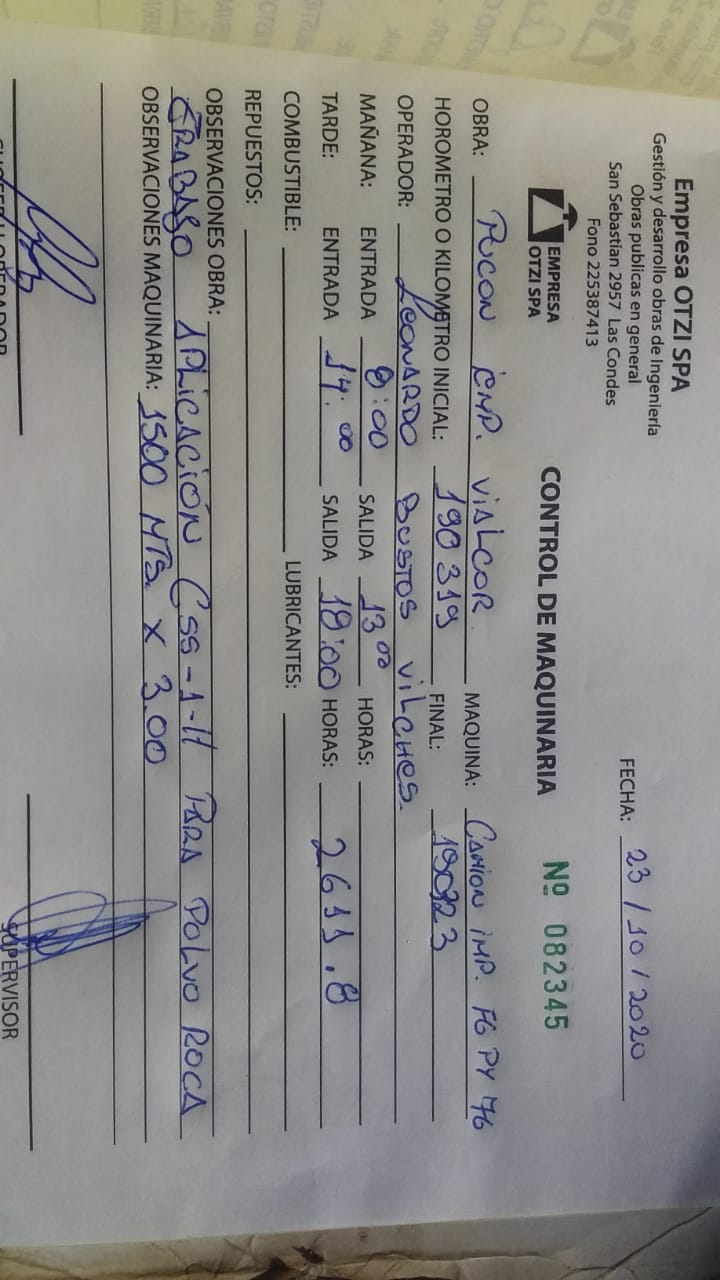 Empresa OTZI SPA
Gestión y desarrollo obras de Ingeniería
Obras publicas en general
San Sebastian 2957 Las Condes
Fono 225387413
FECHA: 23 / 10 / 2020
EMPRESA
OTZI SPA
CONTROL DE MAQUINARIA Nº 082345
OBRA: Pucon EMP. VIALCOR. MAQUINA: CAMION IMP. FG PY 76
HOROMETRO O KILOMETRO INICIAL: 190 319 FINAL:
OPERADOR: LEONARDO BUSTOS VILCHES.
MAÑANA: ENTRADA 8:00 SALIDA 13 00 HORAS:
TARDE: ENTRADA 14:00 SALIDA 18:00 HORAS: 2611.8
COMBUSTIBLE: LUBRICANTES:
REPUESTOS:
OBSERVACIONES OBRA:
TRABAJO APLICACIÓN CSS-1-H PARA POLVO ROCA
OBSERVACIONES MAQUINARIA: 1500 MTS. X 3.00
SUPERVISOR